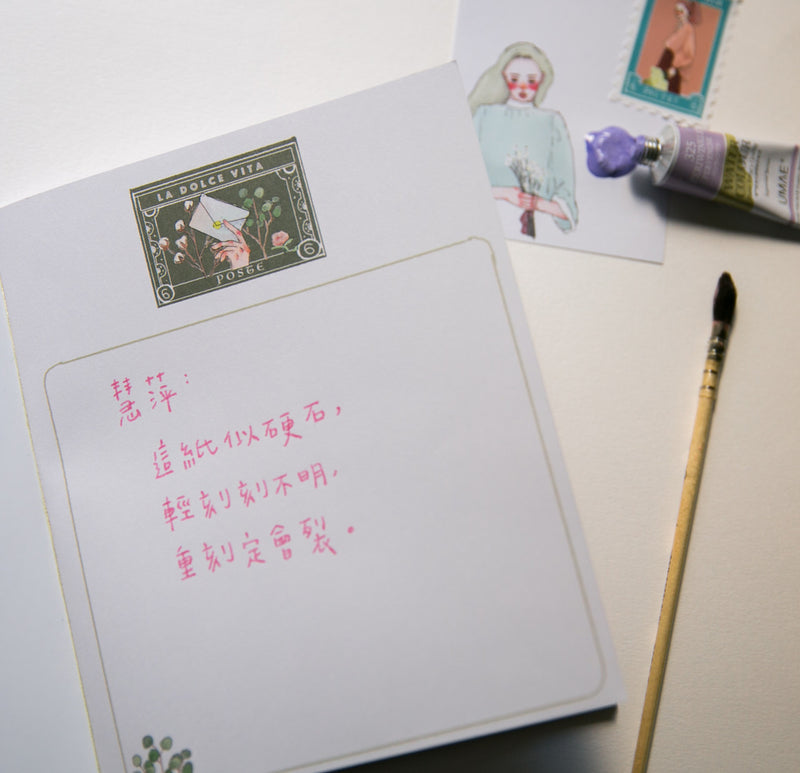 LA DOLCE VITA
6 POSTE 6
慧萍：
這紙似硬石，
輕刻刻不明，
重刻定會裂。
325
UMAE